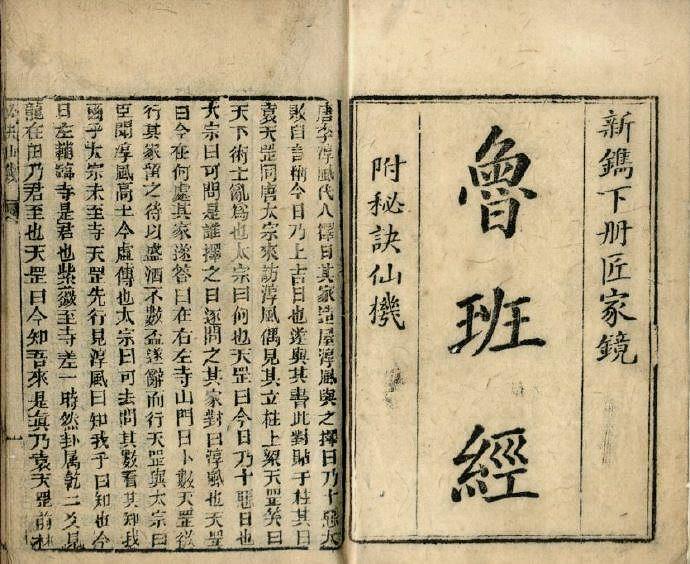 新鐫下册匠家鏡
魯班經
附秘訣仙機
唐李淳風代人擇日其家造屋淳風與之擇日乃十惡大
敗自書柄今日乃上吉日也遂與其書此對貼于柱其日
袁天罡同唐太宗來訪淳風偶見其立柱上梁天罡笑曰
天下術士亂為也太宗曰何也天罡曰今日乃十惡日也
太宗曰可問是誰擇之日遂問之其家對曰淳風也天罡
曰今在何處其家遂答曰在右左寺山門日卜數天罡從
行其家留之待以盛酒不數盃遂辭而行天罡與太宗曰
臣聞淳風高士今虛傳也太宗曰可去問其數看其知我
兩乎太宗未至寺天罡先行見淳風曰知我乎曰知也今
日左輔臨寺是君也紫薇至寺差一時然卦属乾二爻見
龍在田乃君至也天罡曰今知吾來是真乃袁天罡前